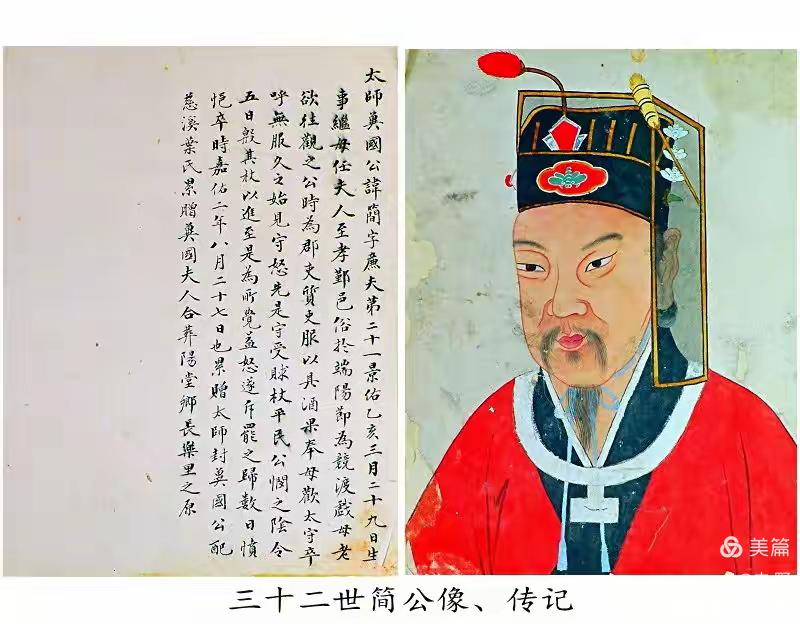 太師冀國公諱簡字廉夫第二十一景佑乙亥三月二十九日生
事繼母任夫人至孝鄞邑俗於端陽節為競渡戲母老
欲往觀之公時為郡吏質吏服以具酒果奉母歡太守卒
呼無服久之始見守怒先是守受賕杖平民公憫之陰令
五日殷其杖以進至是為所覺益怒遂斥罷之歸數日憤
悒卒時嘉佑二年八月二十七日也累贈太師封冀國公配
慈溪葉氏累贈冀國夫人合葬陽堂鄉長樂里之原
美篇
三十二世简公像、传记